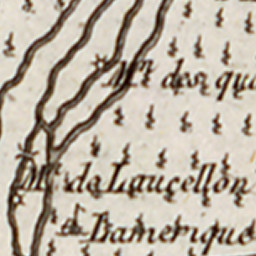 Mⁿ des qua
Mⁿ de Laucellon
Lamerique